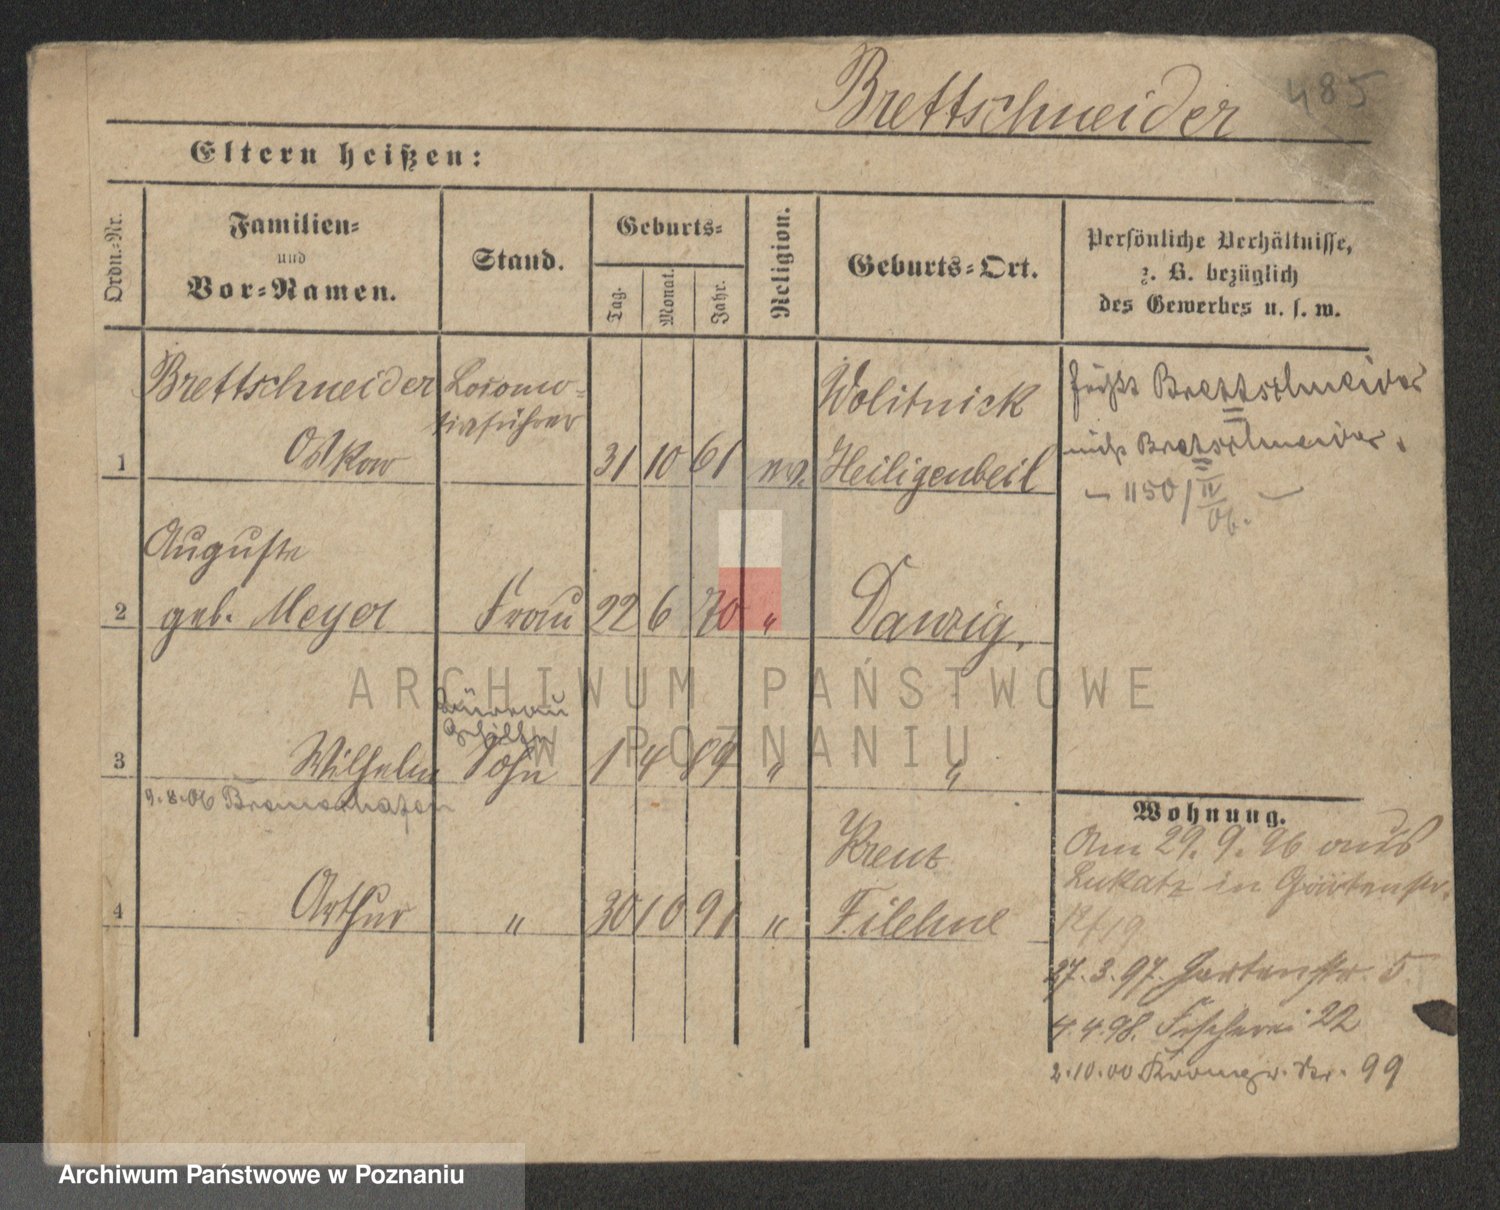 Brettschneider 485
Eltern heißen:
Ordn.-Nr.
Familien-
und
Vor-Namen.
Stand.
Geburts-
Tag.
Monat.
Jahr.
Religion.
Geburts-Ort.
Persönliche Verhältnisse,
z. B. bezüglich
des Gewerbes u. s. w.
Brettschneider Locomo-
tivführer
1 Oskar 31 10 61 ev. Wolitnick
Heiligenbeil
heißt Brettschneider
nicht Bretschneider.
1150/IV
06.
Auguste
2 geb. Meyer Frau 22 6 70 " Danzig.
Gehilfe
3 Wilhelm Sohn 1 4 89 " "
9.8.06 Bremerhafen
Kreuz
4 Arthur " 30 10 91 " Filehne
Wohnung.
Am 29.9.96 aus
Lukatz in Gartenstr.
27.3.97. Gartenstr. 5.
4.4.98. Fischerei 22
2.10.00 Kronprz. Str. 99
ARCHIWUM PAŃSTWOWE
W POZNANIU
Archiwum Państwowe w Poznaniu